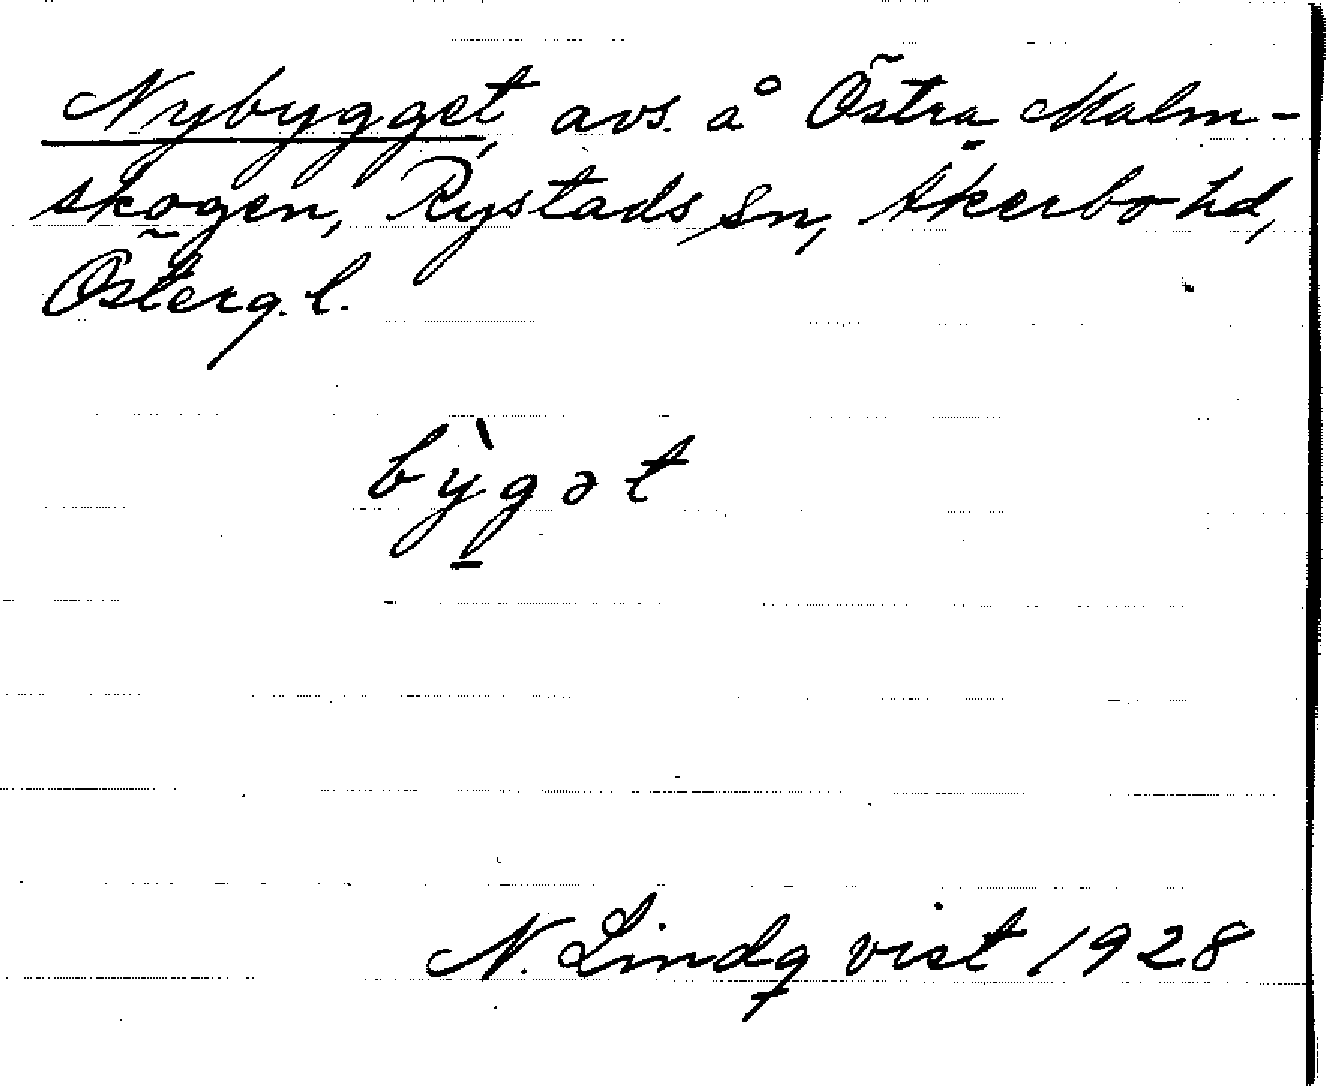 Nybygget, avs. å Östra Malm-
skogen, Rystads sn, Åkerbo hd,
Österg. l.
bỳ̱gət
N. Lindqvist 1928